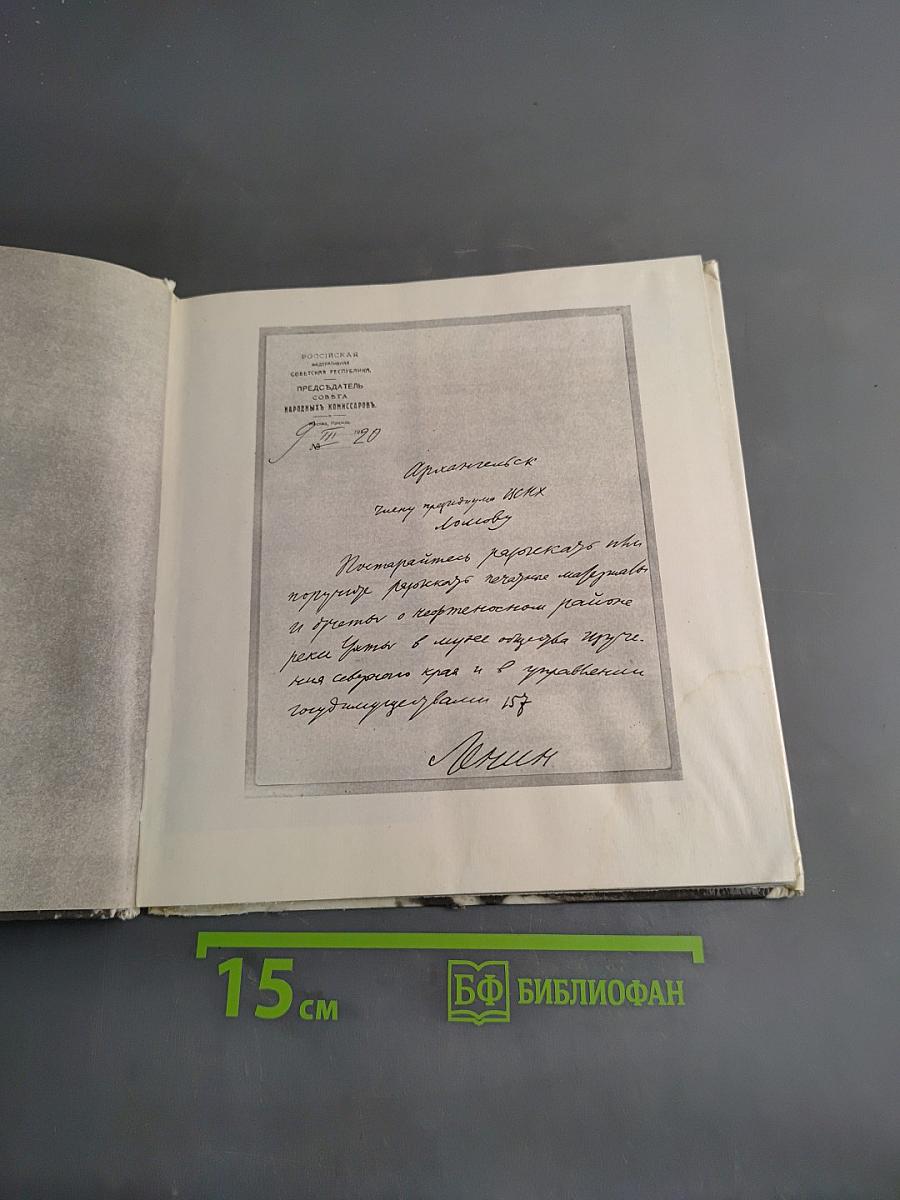 РОССІЙСКАЯ
ФЕДЕРАТИВНАЯ
СОВѢТСКАЯ РЕСПУБЛИКА.
ПРЕДСѢДАТЕЛЬ
СОВѢТА
НАРОДНЫХЪ КОМИССАРОВЪ.
Москва, Кремль.
9 III 1920
№
Архангельск
Члену президиума ВСНХ
Ломову
Постарайтесь разыскать или
поручите разыскать печатные материалы
и отчеты о нефтеносном районе
реки Ухты в музее общества изуче-
ния северного края и в управлении
госудимуществами 157
Ленин
15 см
БФ БИБЛИОФАН